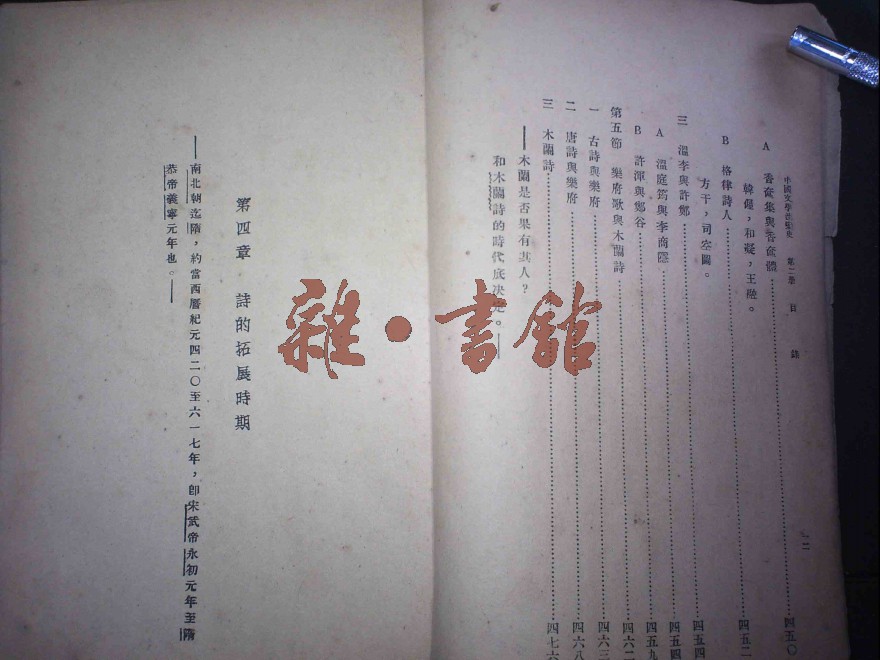 中國文學流變史 第二册 目錄
A 香奩集與香奩體……四五〇
韓偓，和凝，王融。
B 格律詩人……四五二
方干，司空圖。
三 溫李與許鄭……四五四
A 溫庭筠與李商隱……四五四
B 許渾與鄭谷……四五九
第五節 樂府歌與木蘭詩……四六二
一 古詩與樂府……四六三
二 唐詩與樂府……四六八
三 木蘭詩……四七六
——木蘭是否果有其人？
和木蘭詩的時代底決定。——
十二
第四章 詩的拓展時期
——南北朝迄隋，約當西曆紀元四二〇至六一七年，卽宋武帝永初元年至隋
恭帝義寧元年也。——
雜·書館